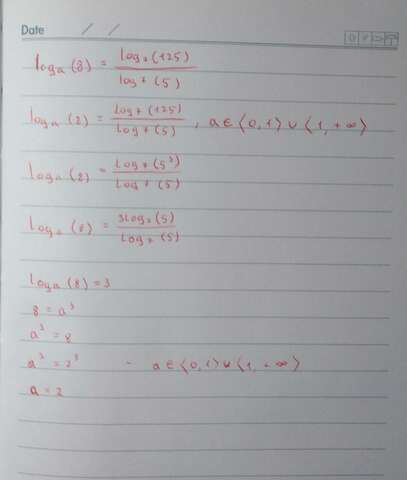 Date / /
logₐ(8) = log₇(125) / log₇(5)
logₐ(8) = log₇(125) / log₇(5) , a ∈ ⟨0,1⟩ ∪ ⟨1,+∞⟩
logₐ(8) = log₇(5³) / log₇(5)
logₐ(8) = 3log₇(5) / log₇(5)
logₐ(8) = 3
8 = a³
a³ = 8
a³ = 2³ - a ∈ ⟨0,1⟩ ∪ ⟨1,+∞⟩
a = 2